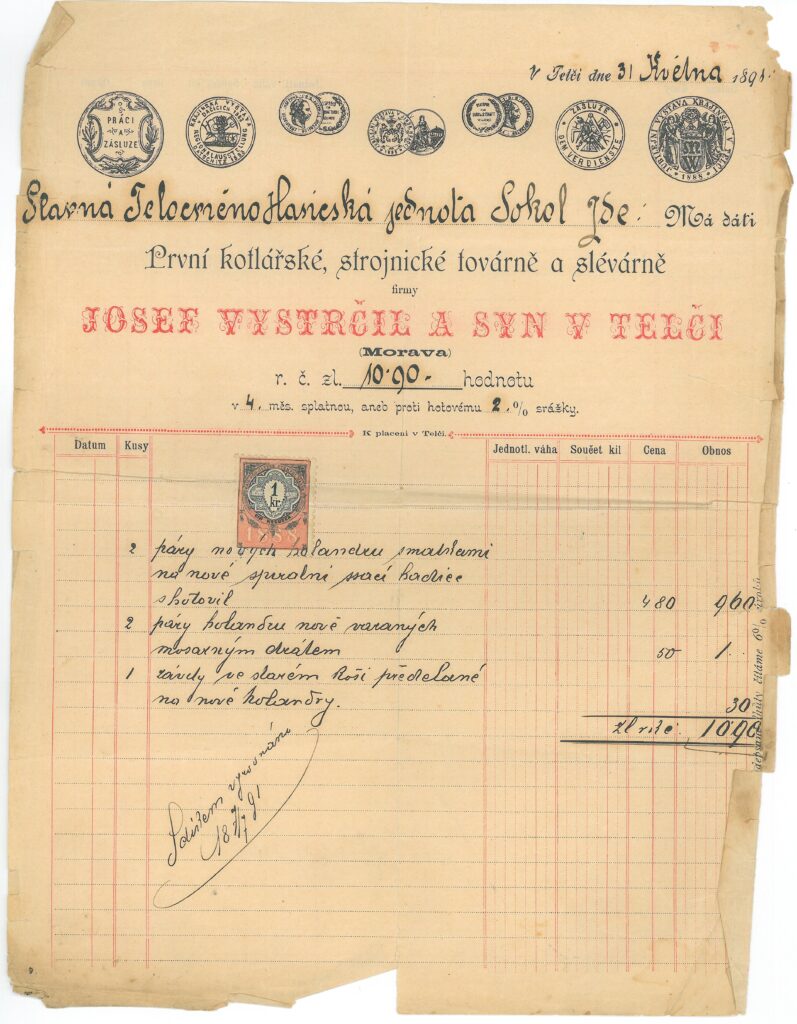 V Telči dne 31 Května 1891.
PRÁCI
A
ZÁSLUZE
ZÁSLUZE
DEN VERDIENSTE
JUBILEJNÍ VÝSTAVA KRAJINSKÁ V TELČI
1888
Slavná Tělocvičně Hasičská jednota Sokol Zde: Má dáti
První kotlářské, strojnické továrně a slévárně
firmy
JOSEF VYSTRČIL A SYN V TELČI
(Morava)
r. č. zl. 10·90 - hodnotu
v 4. měs. splatnou, aneb proti hotovému 2 .% srážky.
K placení v Telči.
Datum Kusy Jednotl. váha Součet kil Cena Obnos
1
kr.
1888
2 páry nových holandru s matkami
na nové spiralní ssací hadice
shotovil 480 960
2 páry holandru nově vazaných
mosazným drátem 50 1 . .
1 závity ve starém koši předelané
na nové holandry. 30
zl 1090
lhůty čítáme 6%
18 7/7 91